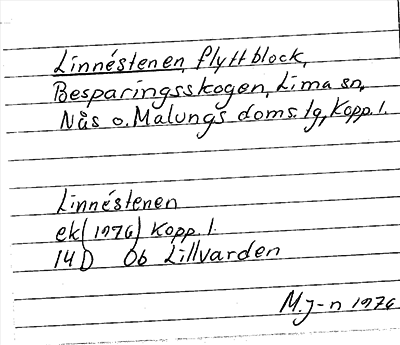 Linnéstenen, flyttblock,
Besparingsskogen, Lima sn,
Nås o. Malungs doms. lg, Kopp. l.
Linnéstenen
ek (1976) Kopp. l.
14 D Ob Lillvarden
M.J-n 1976